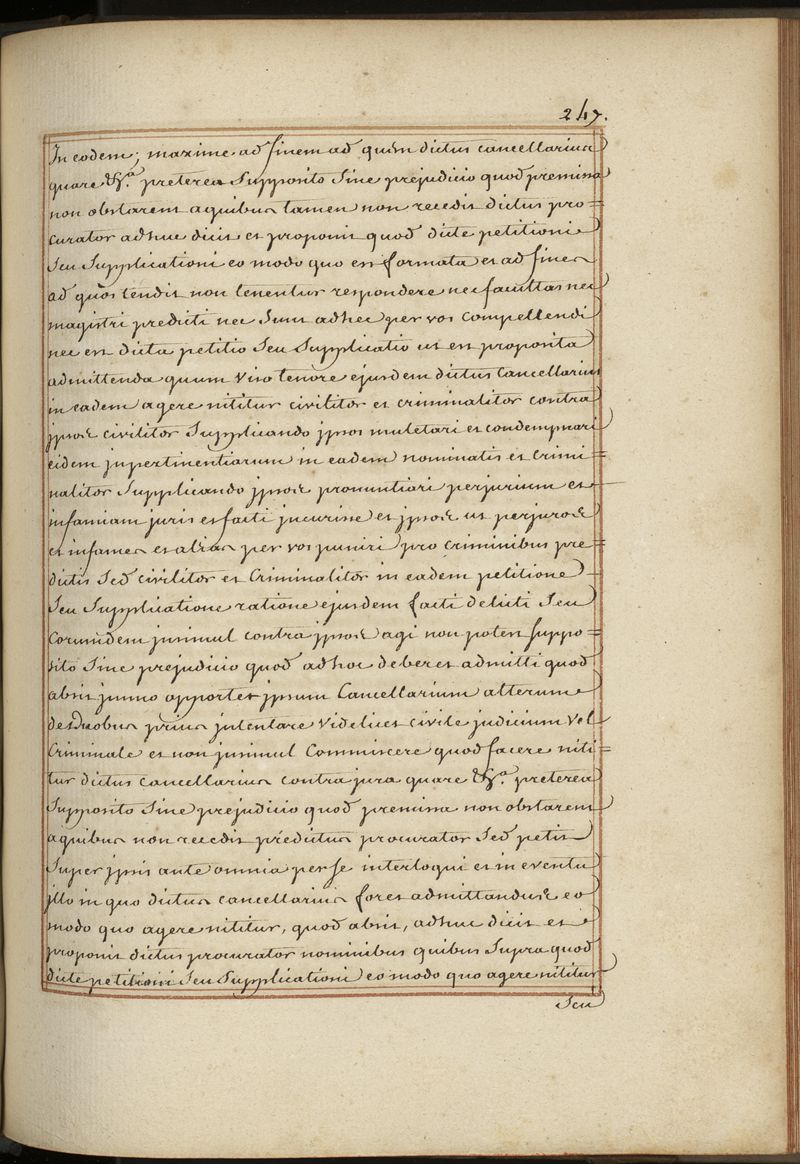 247.
In eodem; maxime ad finem ad quem dictus cancellarius
quare &c.ª preterea Supposito Sine prejudicio quod premissa
non obstarent aquibus tamen non recedit dictus pro=
curator adhuc dicit et proponit quod dicte petitioni
Seu Supplicationi eo modo quo est formata et ad fines
ad quos tendit non tenentur respondere nec facultas nec
magistri predicti nec Sunt adhec per vos compellendi
nec est dicta petitio Seu Supplicatio ut est proposita
admittenda quum viso tenore ejusdem dictus Cancellarius
in eadem agere nititur civilitor et criminalitor contra
jpsos civilitor Supplicando jpsos muletari et condempnari
eidem jnpertinentiarum in eadem nominatis et crimi=
nalitor Supplicando jpsos pronuntiari perjurium et
infamiam juris et facti jncurisse et jpsos ut perjuros
et infames et alias per vos puniri pro criminibus pre=
dictis Sed civilitor et Criminalitor in eadem petitione
Seu Supplicatione ratione ejusdem facti delicti Seu
Corumdem jnsimul contra jpsos agi non potest suppo=
sito Sine prejudicio quod adhoc deberet admitti quod
absit jmmo opportet jpsum Cancellarium alterum
de duobus prius jntentare videlicet civile judicium vel
Criminale et non jnsimul Commiscere quod facere niti=
tur dictus cancellarius contra jura quare &c.ª preterea
Supposito Sine prejudicio quod premissa non obstarent
aquibus non recedit predictus procurator Sed petit
Super jpsis ante omnia per se interloqui et in eventu
jllo in quo dictus cancellarius foret admittandus eo
modo quo agere nititur, quod absit, adhuc dicit et
proponit dictus procurator nominibus quibus Supra quod
dicte petitioni Seu Supplicationi eo modo quo agere nititur
Seu